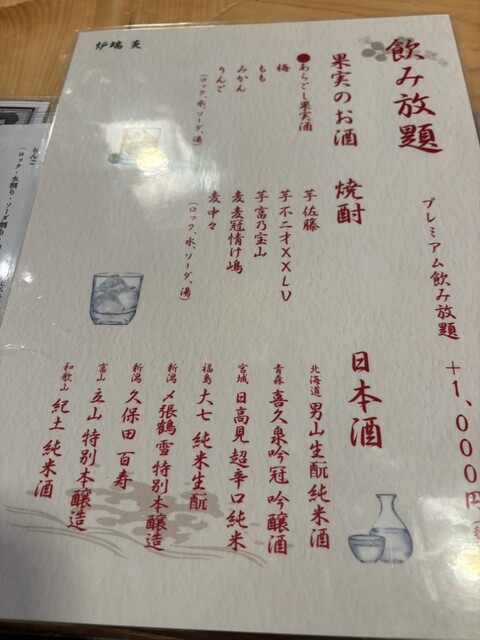 飲み放題
プレミアム飲み放題 +1,000円
果実のお酒
●あらごし果実酒
梅
もも
みかん
りんご
(ロック、水、ソーダ、湯)
焼酎
芋 佐藤
芋 不二才XXLV
芋 富乃宝山
麦 麦冠情け嶋
麦 中々
(ロック、水、ソーダ、湯)
日本酒
北海道 男山生酛純米酒
青森 喜久泉吟冠 吟醸酒
宮城 日高見 超辛口純米
福島 大七 純米生酛
新潟 〆張鶴 雪 特別本醸造
新潟 久保田 百寿
富山 立山 特別本醸造
和歌山 紀土 純米酒
炉端 炎
りんご
(ロック・水割り・ソーダ割り・